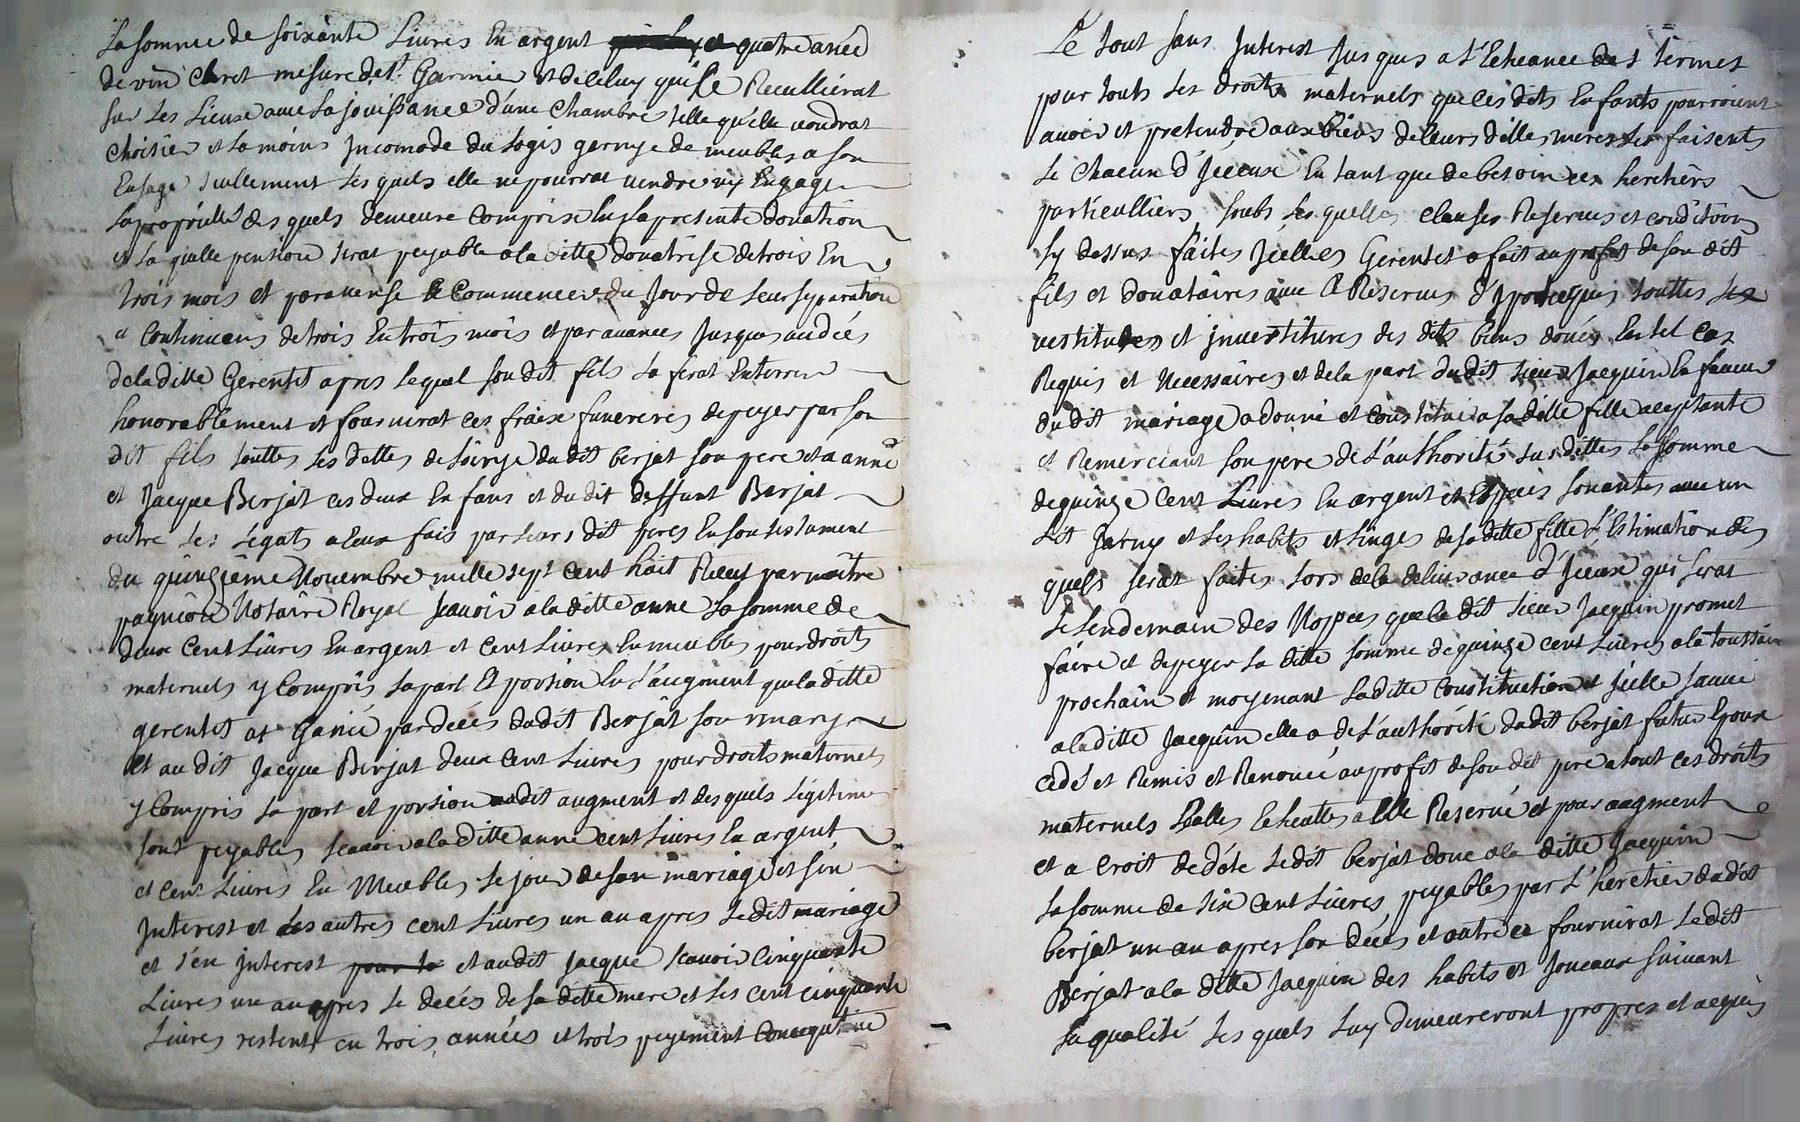 La somme de soixante Livres En argent quatre anée
de vin Claret mesure de St Garmie et de celuy qui se Recullierat
sur Les Lieux avec La jouissance d'une Chambre telle qu'elle voudrat
Choisier et La moins Jncomode du Logis garnye de meubles a son
Eusage seullement Les quels elle ne pourrat vendre ny Engager
La propriété des quels demeure Comprise En La presente donation
et La quelle pension serat peyable a la ditte donatrise de trois En
trois mois et par avense Commencer du Jour de Leur separation
et Continuers de trois En trois mois et par avances Jusques au décés
de la ditte Gerentet apres Lequel son dit fils La ferat Enterrer
honorablement et fournirat ces fraix funereres de peyer par son
dit fils touttes Les dettes du dit berjat son pere et a anne
et Jacque Berjat ces deux Enfans et du dit deffunt Berjat
outre Les Légats a Eux fais par Leurs dit peres En son testament
du quinzieme Novembre mille sept cent huit Receu par maître
Notaire Royal scavoir a la ditte anne La somme de
deux Cent Livres En argent et Cent Livres En meubles pour droits
maternels y Compris sa part Et portion En L'augment que la ditte
gerentet at Ganié par decés du dit Berjat son mary
Et au dit Jacque Berjat deux Cent Livres pour droits maternels
y Compris sa part et portion audit augment et des quels Légitime
sont peyables scavoir a la ditte anne cent Livres En argent
et cent Livres En Meubles Le jour de son mariage et sin
Jnterest et Les autres cent Livres un an apres Le dit mariage
et s'en Jnterest pour La et au dit Jacque scavoir Cinquante
Livres un an apres Le decés de sa ditte mere et Les cent cinquante
Livres restent en trois années et trois peyement Consequtive
Le tout sans Jnterest Jusques a L'Echeance des termes
pour touts Les droits maternels que Les dits Enfants pourroient
avoir et pretendre aux Biens de Leurs ditte mere Les faisents
Le Chacun d'Jceux En tant que de besoin ces heretiers
particulliers soubs Les quelles clauses Reserves et conditions
sy dessus faites Jcelles Gerentet a fait au profit de son dit
fils et donataires avec Reserves d'ypoteques touttes Les
vestitures et jnvestitures des dits biens donés En tel Cas
Requis et Necessaires et de la part du dit sieur Jacquin En faveur
du dit mariage a donné et Constitué a sa ditte fille aceptante
et Remerciant son pere de L'authorité sus dittes La somme
de quinze Cent Livres En argent et Espéces sonantes avec un
Lit Garny et Les habits et Linges de sa ditte fille L'Estimation des
quels serat faites Lors de la delivrance d'Jceux qui serat
Le Lendemain des Nopces que le dit sieur Jacquin promet
faire et de peyer La ditte somme de quinze cent Livres a la toussain
prochain et moyenant La ditte Constitution
a la ditte Jacquin elle a de L'authorité du dit berjat futur Epoux
cedé et Remis et Renoncé au profit de son dit pere a tout ces droits
maternels a Elle Reservé et pour augment
et a Croit de dote Le dit berjat done a la ditte Jacquin
La somme de six Cent Livres peyables par L'heretier du dit
berjat un an apres son decés et outre ce fournirat Le dit
Berjat a la ditte Jacquin des habits et Joueaux suivant
sa qualité Les quels Luy demeureront propres et acquis